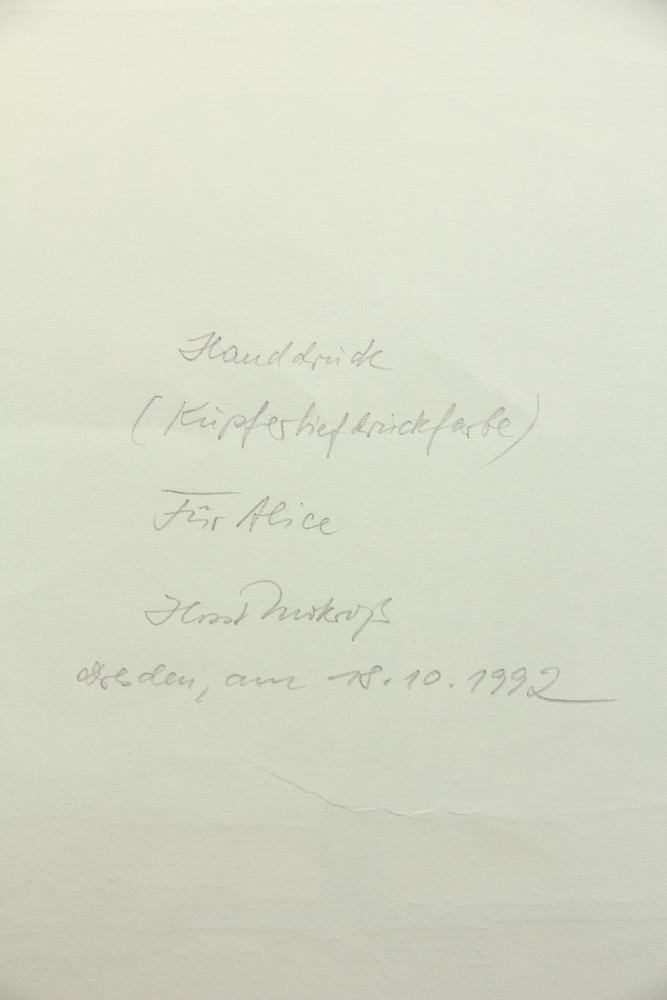 Handdruck
(Kupfertiefdruckfarbe)
Für Alice
Horst
Dresden, am 18.10.1992